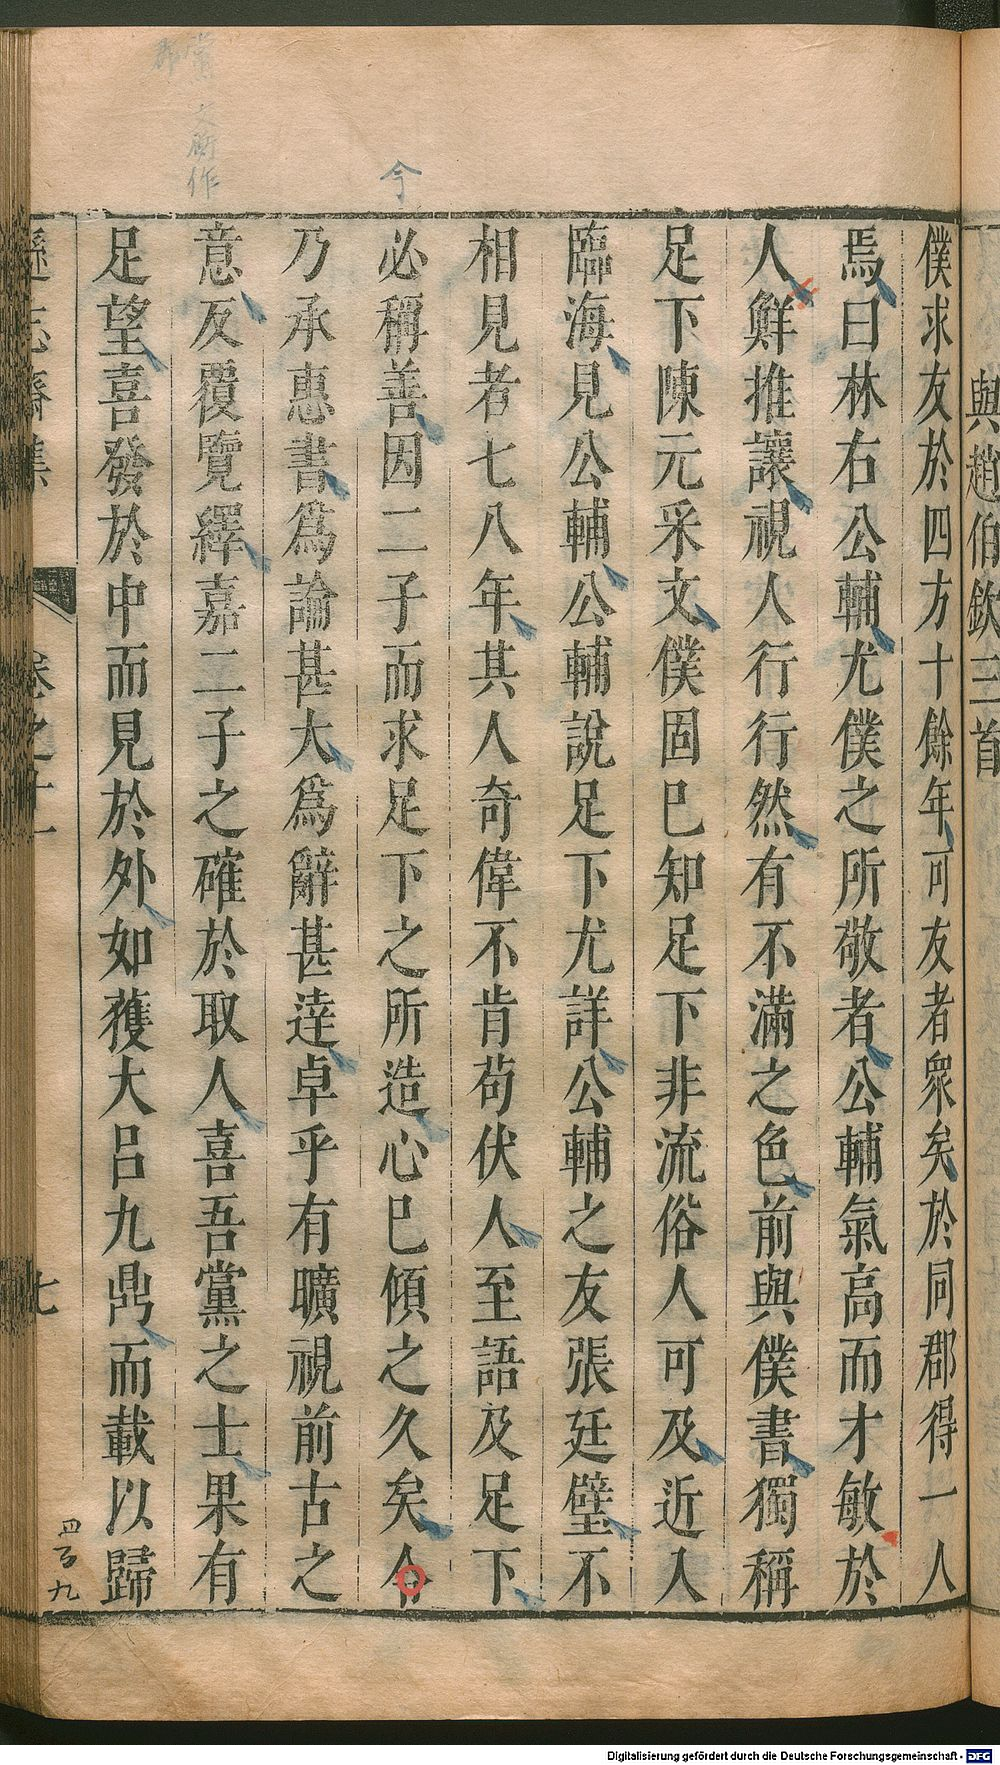 與趙伯欽三首
僕求友於四方十餘年可友者衆矣於同郡得一人
焉曰林右公輔尤僕之所敬者公輔氣高而才敏於
人鮮推讓視人行行然有不滿之色前與僕書獨稱
足下陳元采文僕固巳知足下非流俗人可及近入
臨海見公輔公輔說足下尤詳公輔之友張廷璧不
相見者七八年其人奇偉不肯苟伏人至語及足下
必稱善因二子而求足下之所造心巳傾之久矣令
今
乃承惠書爲論甚大爲辭甚達卓乎有曠視前古之
意反覆覽繹嘉二子之確於取人喜吾黨之士果有
黨文斷作
郡
足望喜發於中而見於外如獲大呂九鼎而載以歸
遜志齋集 卷之十一 七
四百九
Digitalisierung gefördert durch die Deutsche Forschungsgemeinschaft - DFG